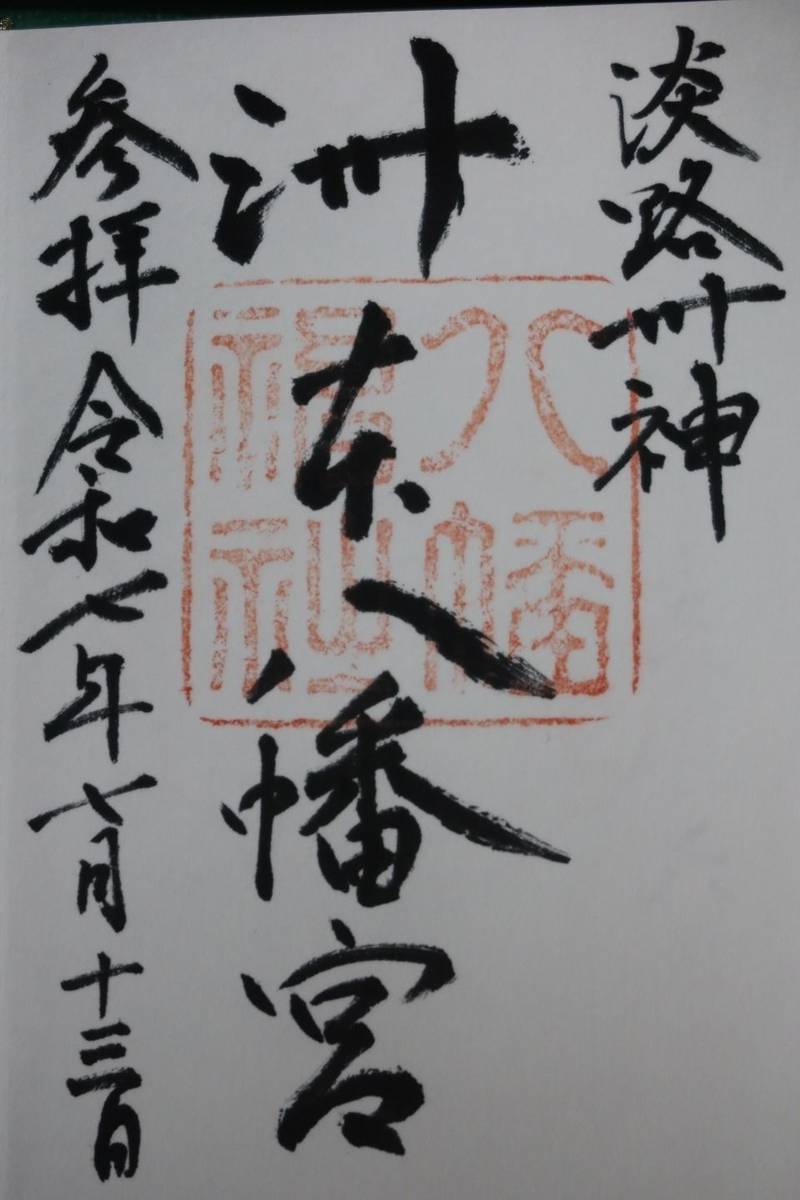 淡路州神
洲本八幡宮
八幡神社
参拝 令和七年七月十三日